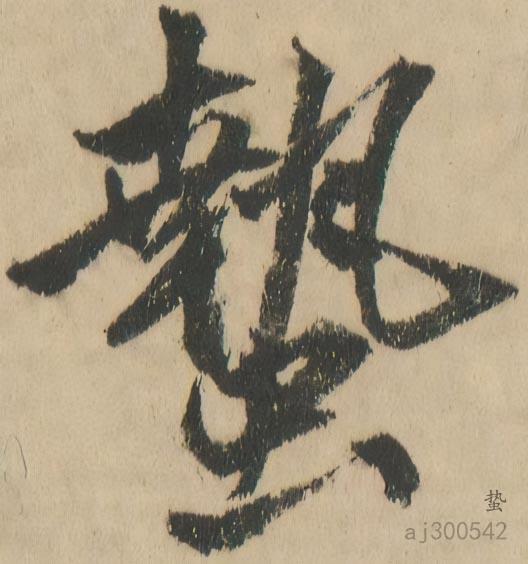 蟄
蛰
aj300542